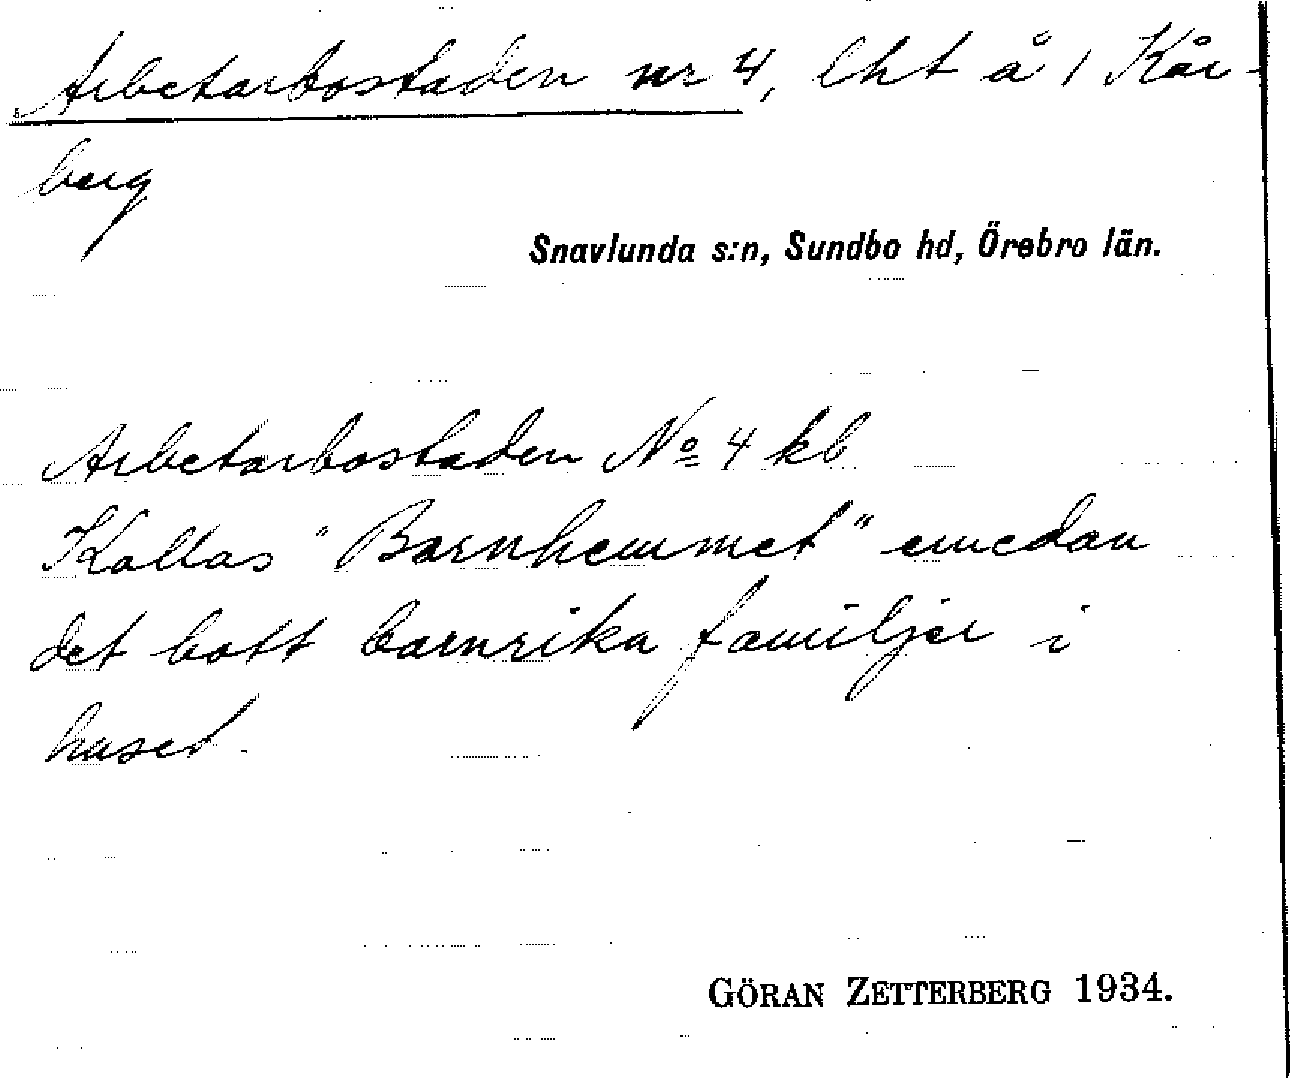 Arbetarbostaden nr 4, lht å 1 Kår-
berg
Snavlunda s:n, Sundbo hd, Örebro län.
Arbetarbostaden No 4 kb
Kallas "Barnhemmet" emedan
det bott barnrika familjer i
huset.
GÖRAN ZETTERBERG 1934.